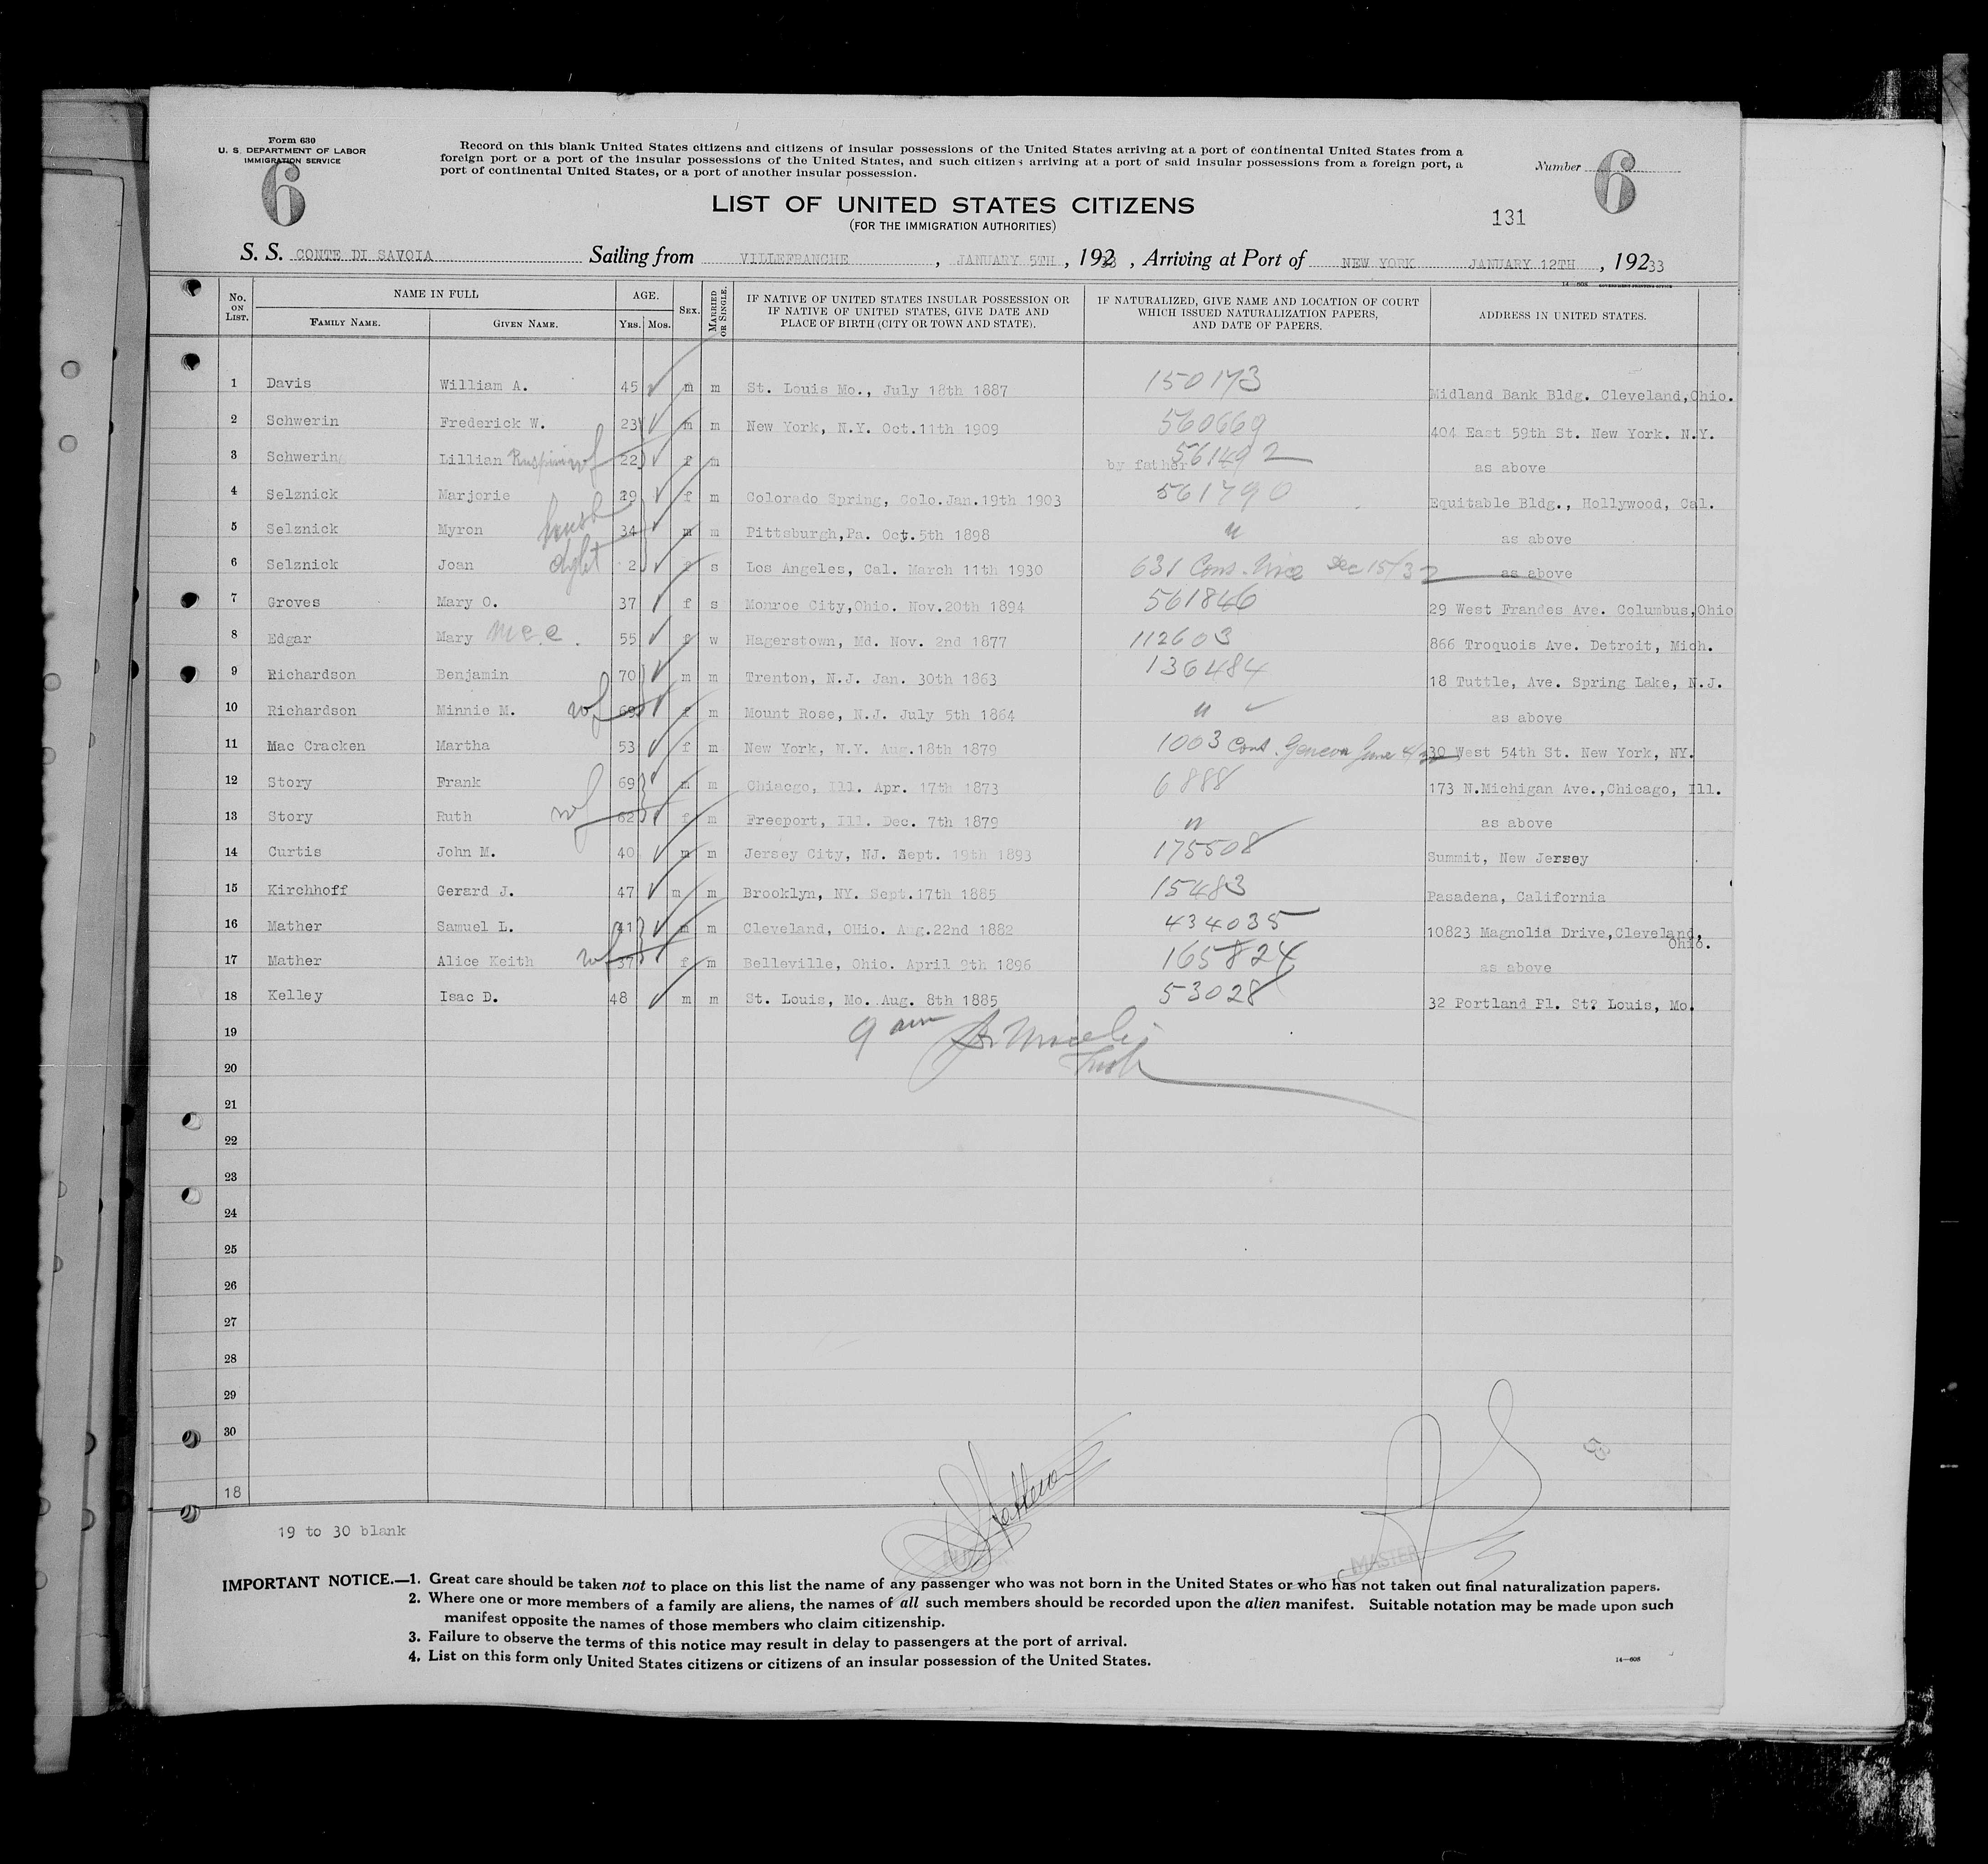 Form 630
U. S. DEPARTMENT OF LABOR
IMMIGRATION SERVICE
6
Record on this blank United States citizens and citizens of insular possessions of the United States arriving at a port of continental United States from a
foreign port or a port of the insular possessions of the United States, and such citizens arriving at a port of said insular possessions from a foreign port, a
port of continental United States, or a port of another insular possession.
Number 6
LIST OF UNITED STATES CITIZENS
(FOR THE IMMIGRATION AUTHORITIES)
131
S. S. CONTE DI SAVOIA Sailing from VILLEFRANCHE, JANUARY 5TH, 19233, Arriving at Port of NEW YORK JANUARY 12TH, 19233
14—608 GOVERNMENT PRINTING OFFICE
No. ON LIST. NAME IN FULL FAMILY NAME. GIVEN NAME. AGE. YRS. MOS. SEX. MARRIED OR SINGLE. IF NATIVE OF UNITED STATES INSULAR POSSESSION OR IF NATIVE OF UNITED STATES, GIVE DATE AND PLACE OF BIRTH (CITY OR TOWN AND STATE). IF NATURALIZED, GIVE NAME AND LOCATION OF COURT WHICH ISSUED NATURALIZATION PAPERS, AND DATE OF PAPERS. ADDRESS IN UNITED STATES.
1 Davis William A. 45 m m St. Louis Mo., July 18th 1887 150173 Midland Bank Bldg. Cleveland, Ohio.
2 Schwerin Frederick W. 23 m m New York, N.Y. Oct.11th 1909 560669 404 East 59th St. New York. N.Y.
3 Schwering Lillian wf 22 f m by father 561492 as above
4 Selznick Marjorie 29 f m Colorado Spring, Colo.Jan.19th 1903 561790 Equitable Bldg., Hollywood, Cal.
5 Selznick Myron husb 34 m m Pittsburgh,Pa. Oct.5th 1898 " as above
6 Selznick Joan dght 2 f s Los Angeles, Cal. March 11th 1930 631 Cons. Nice Dec 15/32 as above
7 Groves Mary O. 37 f s Monroe City,Ohio. Nov.20th 1894 561846 29 West Frandes Ave. Columbus,Ohio
8 Edgar Mary McC. 55 f w Hagerstown, Md. Nov. 2nd 1877 112603 866 Troquois Ave. Detroit, Mich.
9 Richardson Benjamin 70 m m Trenton, N.J. Jan. 30th 1863 136484 18 Tuttle, Ave. Spring Lake, N.J.
10 Richardson Minnie M. wf 69 f m Mount Rose, N.J. July 5th 1864 " as above
11 Mac Cracken Martha 53 f m New York, N.Y. Aug.18th 1879 1003 Cons. Geneva June 30 West 54th St. New York, NY.
12 Story Frank 69 m m Chiacgo, Ill. Apr. 17th 1873 6888 173 N.Michigan Ave.,Chicago, Ill.
13 Story Ruth wf 62 f m Freeport, Ill. Dec. 7th 1879 " as above
14 Curtis John M. 40 m m Jersey City, NJ. Sept. 19th 1893 175508 Summit, New Jersey
15 Kirchhoff Gerard J. 47 m m Brooklyn, NY. Sept.17th 1885 15483 Pasadena, California
16 Mather Samuel L. 41 m m Cleveland, OHio. Aug.22nd 1882 434035 10823 Magnolia Drive,Cleveland, Ohio.
17 Mather Alice Keith wf 37 f m Belleville, Ohio. April 9th 1896 165824 as above
18 Kelley Isac D. 48 m m St. Louis, Mo. Aug. 8th 1885 53028 32 Portland Pl. St? Louis, Mo.
19 9 am
20
21
22
23
24
25
26
27
28
29
30
18
19 to 30 blank
MASTER
IMPORTANT NOTICE.—1. Great care should be taken not to place on this list the name of any passenger who was not born in the United States or who has not taken out final naturalization papers.
2. Where one or more members of a family are aliens, the names of all such members should be recorded upon the alien manifest. Suitable notation may be made upon such
manifest opposite the names of those members who claim citizenship.
3. Failure to observe the terms of this notice may result in delay to passengers at the port of arrival.
4. List on this form only United States citizens or citizens of an insular possession of the United States.
14—608